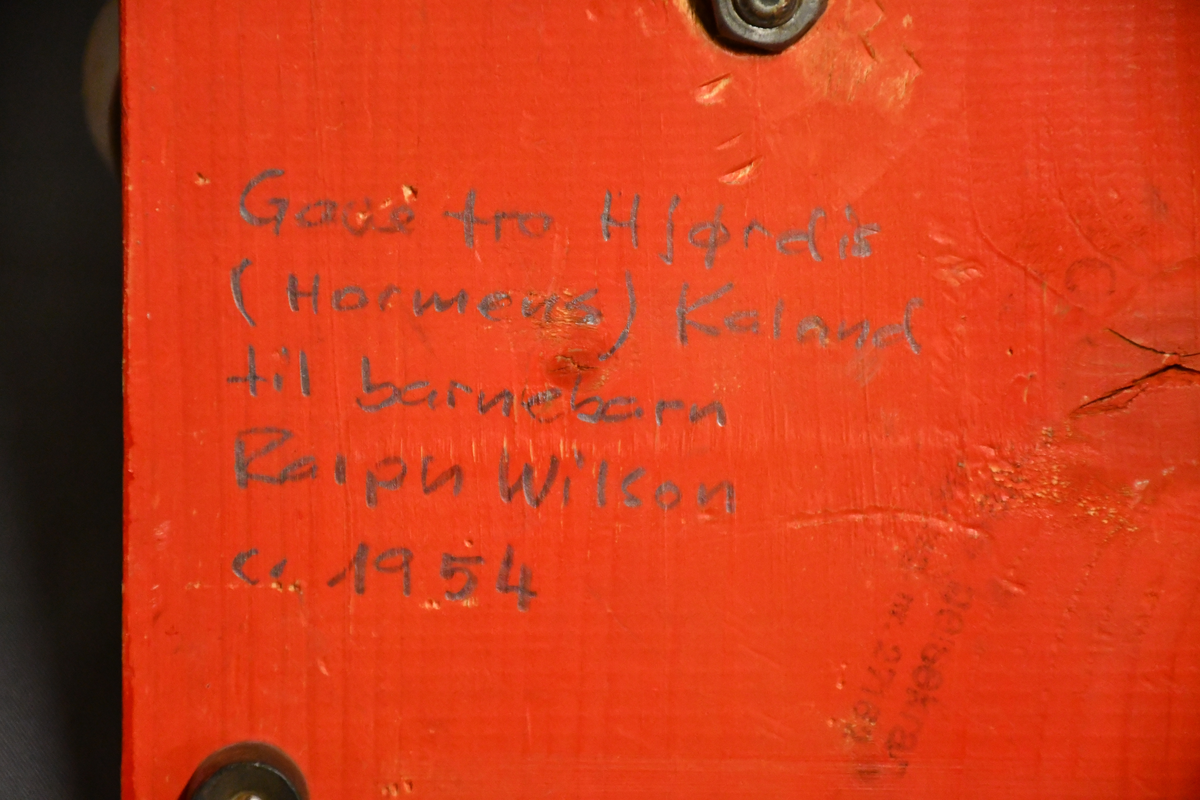 Gave fra Hjørdis
(Hormens) Kaland
til barnebarn
Ralph Wilson
c. 1954